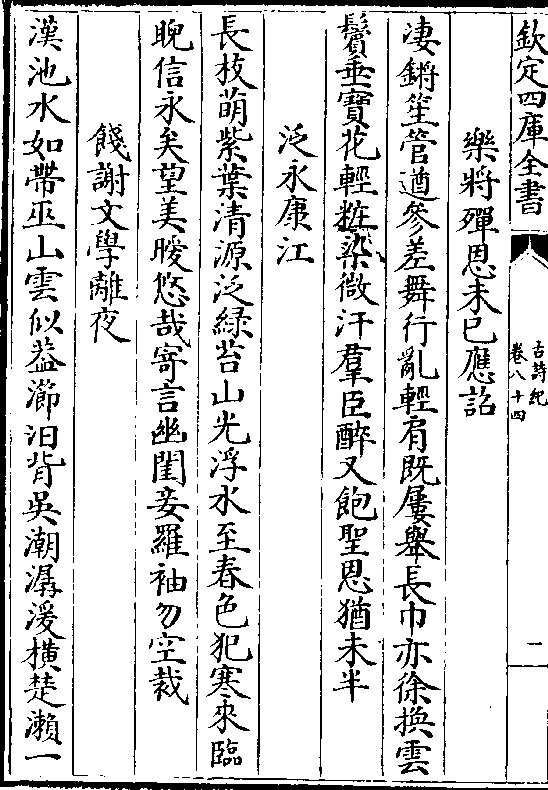 欽定四庫全書
古詩紀
卷八十四
二
樂將殫恩未已應詔
淒鏘笙管遒參差舞行亂輕肩既屢舉長巾亦徐換雲
鬢垂寶花輕粧染微汗羣臣醉又飽聖恩猶未半
泛永康江
長枝萌紫葉清源泛緑苔山光浮水至春色犯寒來臨
睨信永矣望美曖悠哉寄言幽閨妾羅袖勿空裁
餞謝文學離夜
漢池水如帶巫山雲似葢瀄汨背吳潮潺湲橫楚瀨一